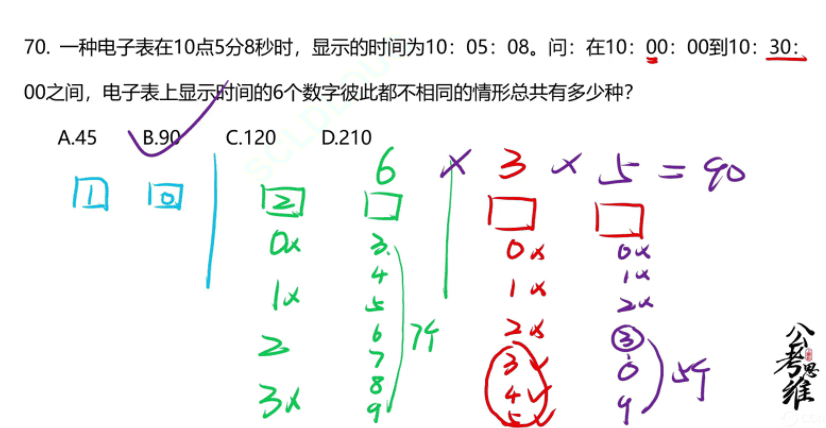 70. 一种电子表在10点5分8秒时，显示的时间为10：05：08。问：在10：00：00到10：30：
00之间，电子表上显示时间的6个数字彼此都不相同的情形总共有多少种？
A.45 B.90 C.120 D.210
6 × 3 × 5 = 90
1 0 2
0× 3 0× 0×
4 1×
1× 5 1× 2×
2 6 2× 3
7 7个 3✓ 0 5个
3× 8 4✓
9 5✓ 9
公考思维